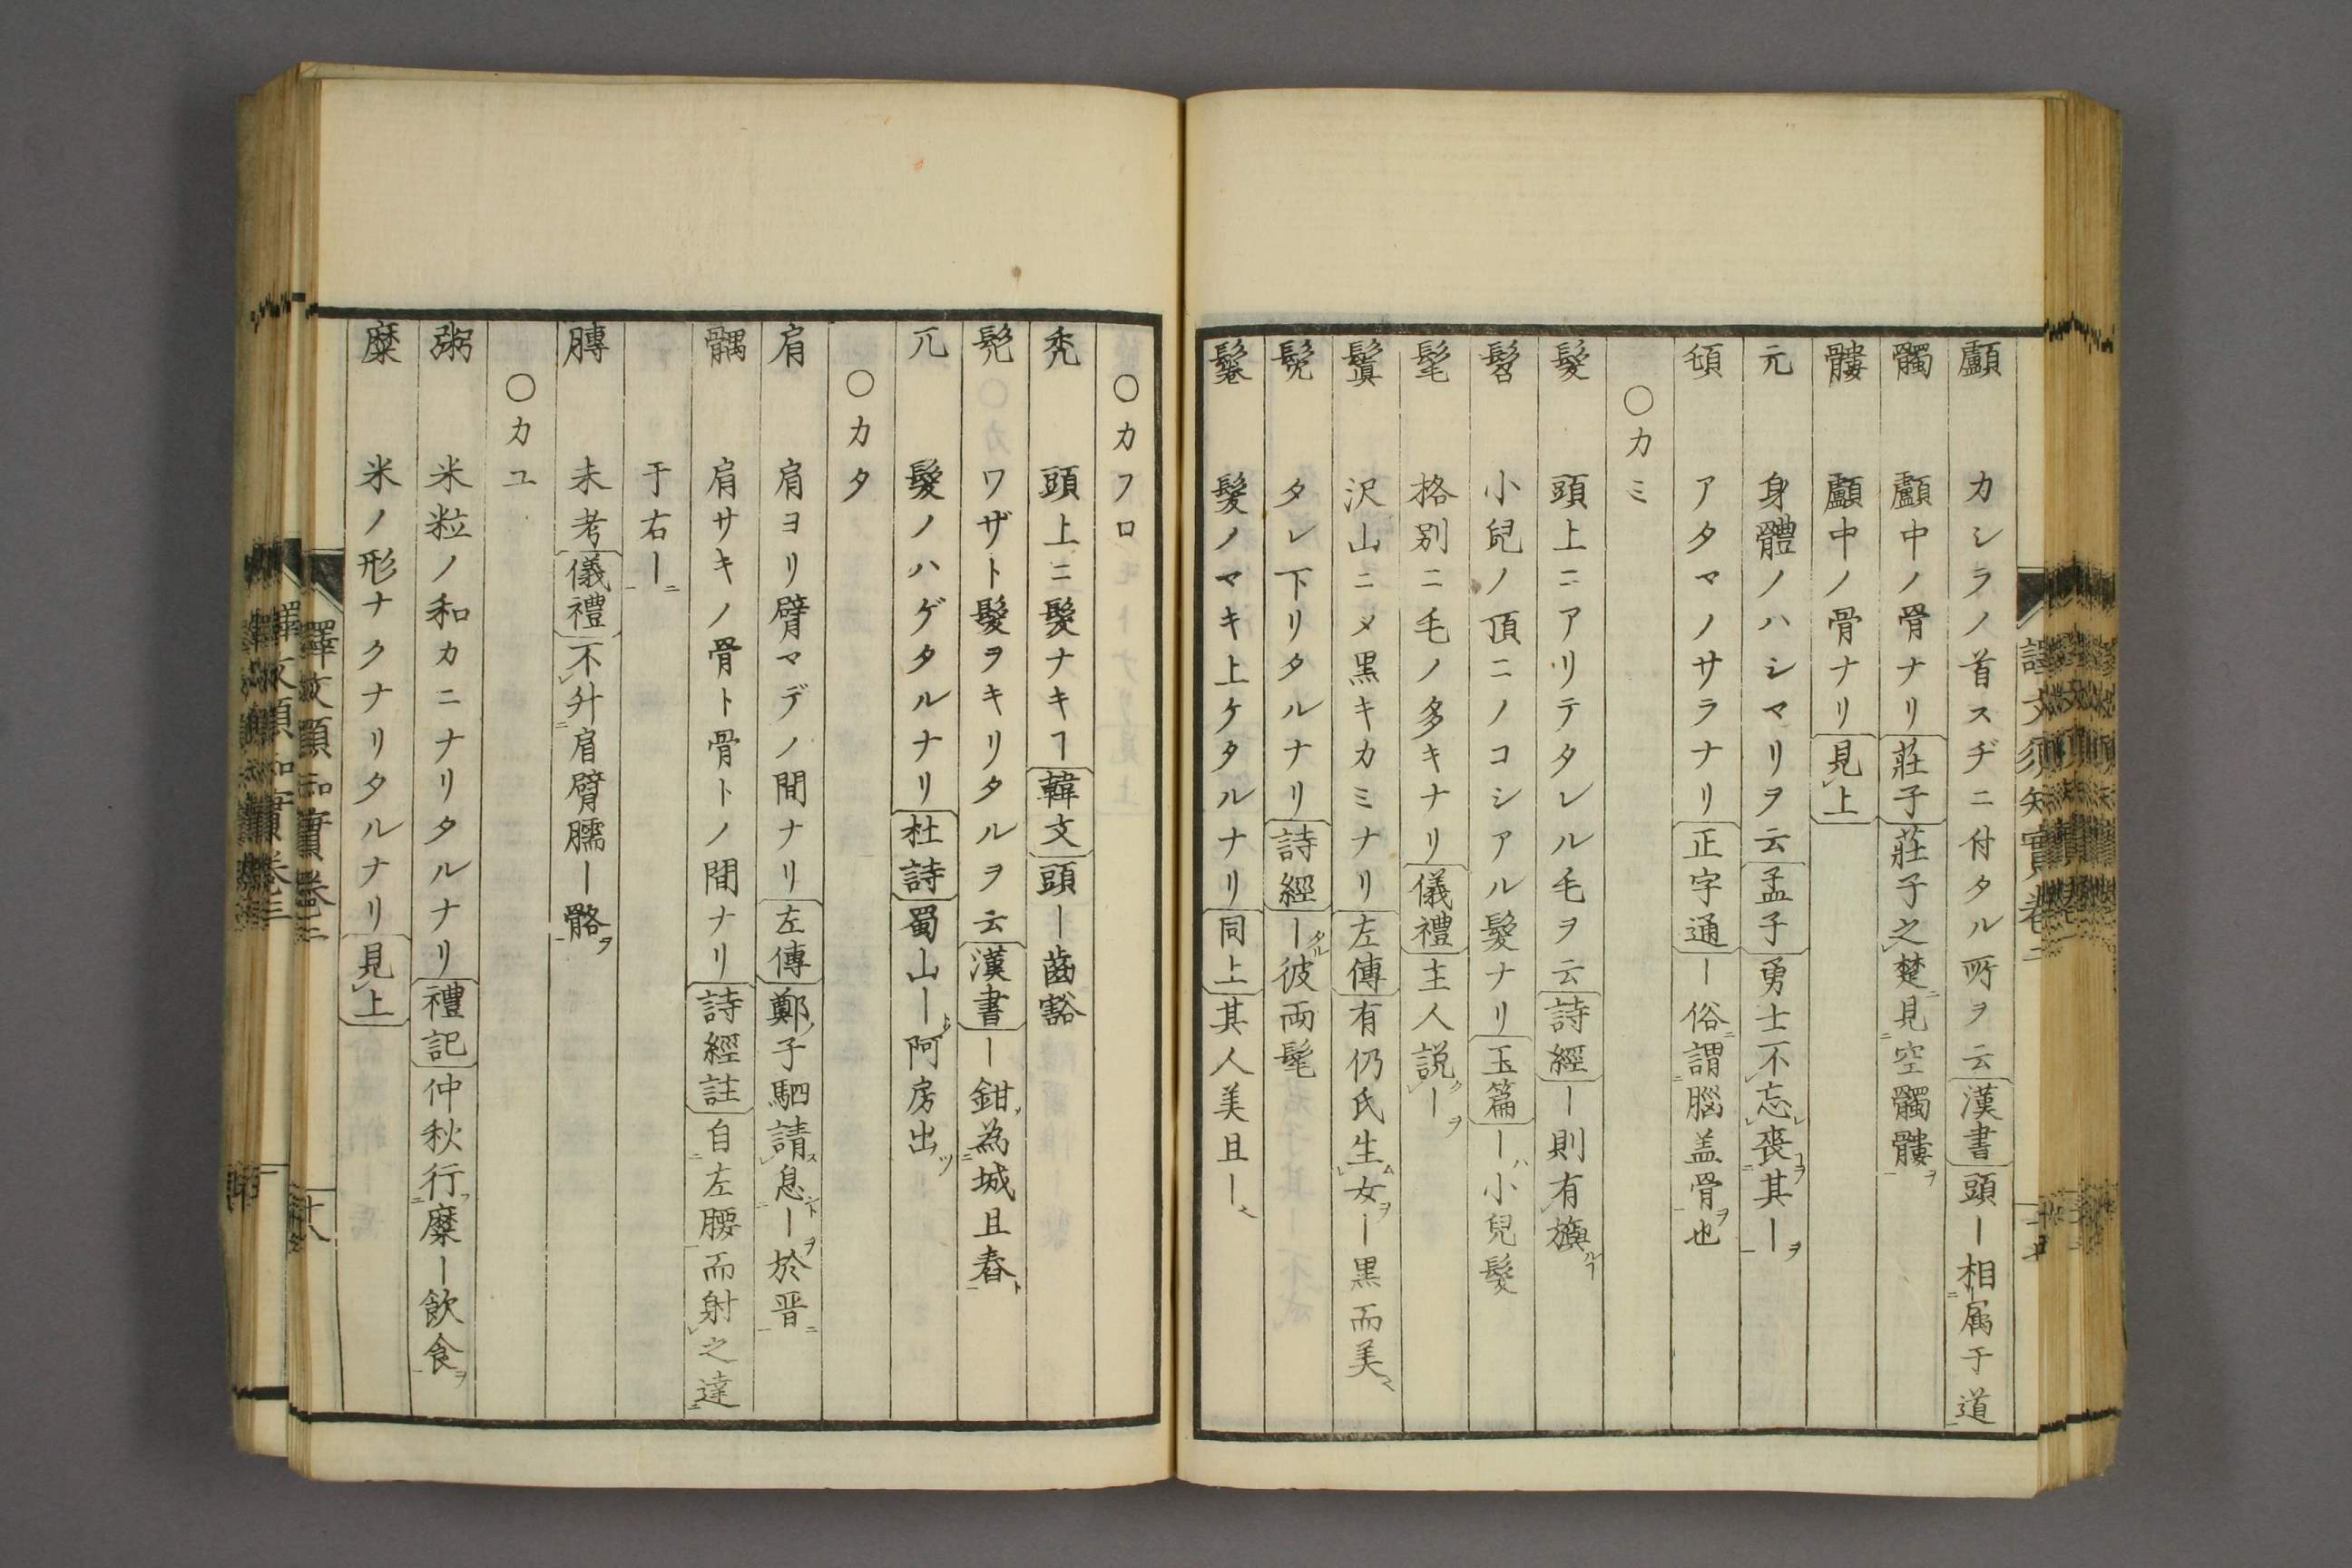 顱 カシラノ首スヂニ付タル所ヲ云漢書頭ー相属于道
髑 顱中ノ骨ナリ莊子莊子之楚見空髑髏ヲ
髏 顱中ノ骨ナリ見上
元 身體ノハシマリヲ云孟子勇士不忘喪其ーヲ
頓 アタマノサラナリ正字通ー俗謂腦盖骨ヲ也
〇カミ
髮 頭上ニアリテタレル毛ヲ云詩經ー則有旟
髫 小兒ノ頂ニノコシアル髮ナリ玉篇ーハ小兒髮
髦 格別ニ毛ノ多キナリ儀禮主人説ーヲ
鬒 沢山ニメ黒キカミナリ左傳有仍氏生女ヲー黒而美
髧 タレ下リタルナリ詩經ータル彼両髦
鬈 髮ノマキ上ケタルナリ同上其人美且ー
〇カフロ
禿 頭上ニ髮ナキヿ韓文頭ー齒豁
髡 ワザト髮ヲキリタルヲ云漢書ー鉗為城且舂
兀 髮ノハゲタルナリ杜詩蜀山ー阿房出ツ
〇カタ
肩 肩ヨリ臂マデノ間ナリ左傳鄭子駟請息ーヲ於晋ニ
髃 肩サキノ骨ト骨トノ間ナリ詩經註自左腰而射之達
于右ー
膞 未考儀禮不升肩臂臑ー骼ヲ
〇カユ
粥 米粒ノ和カニナリタルナリ禮記仲秋行糜ー飲食ヲ
糜 米ノ形ナクナリタルナリ見上